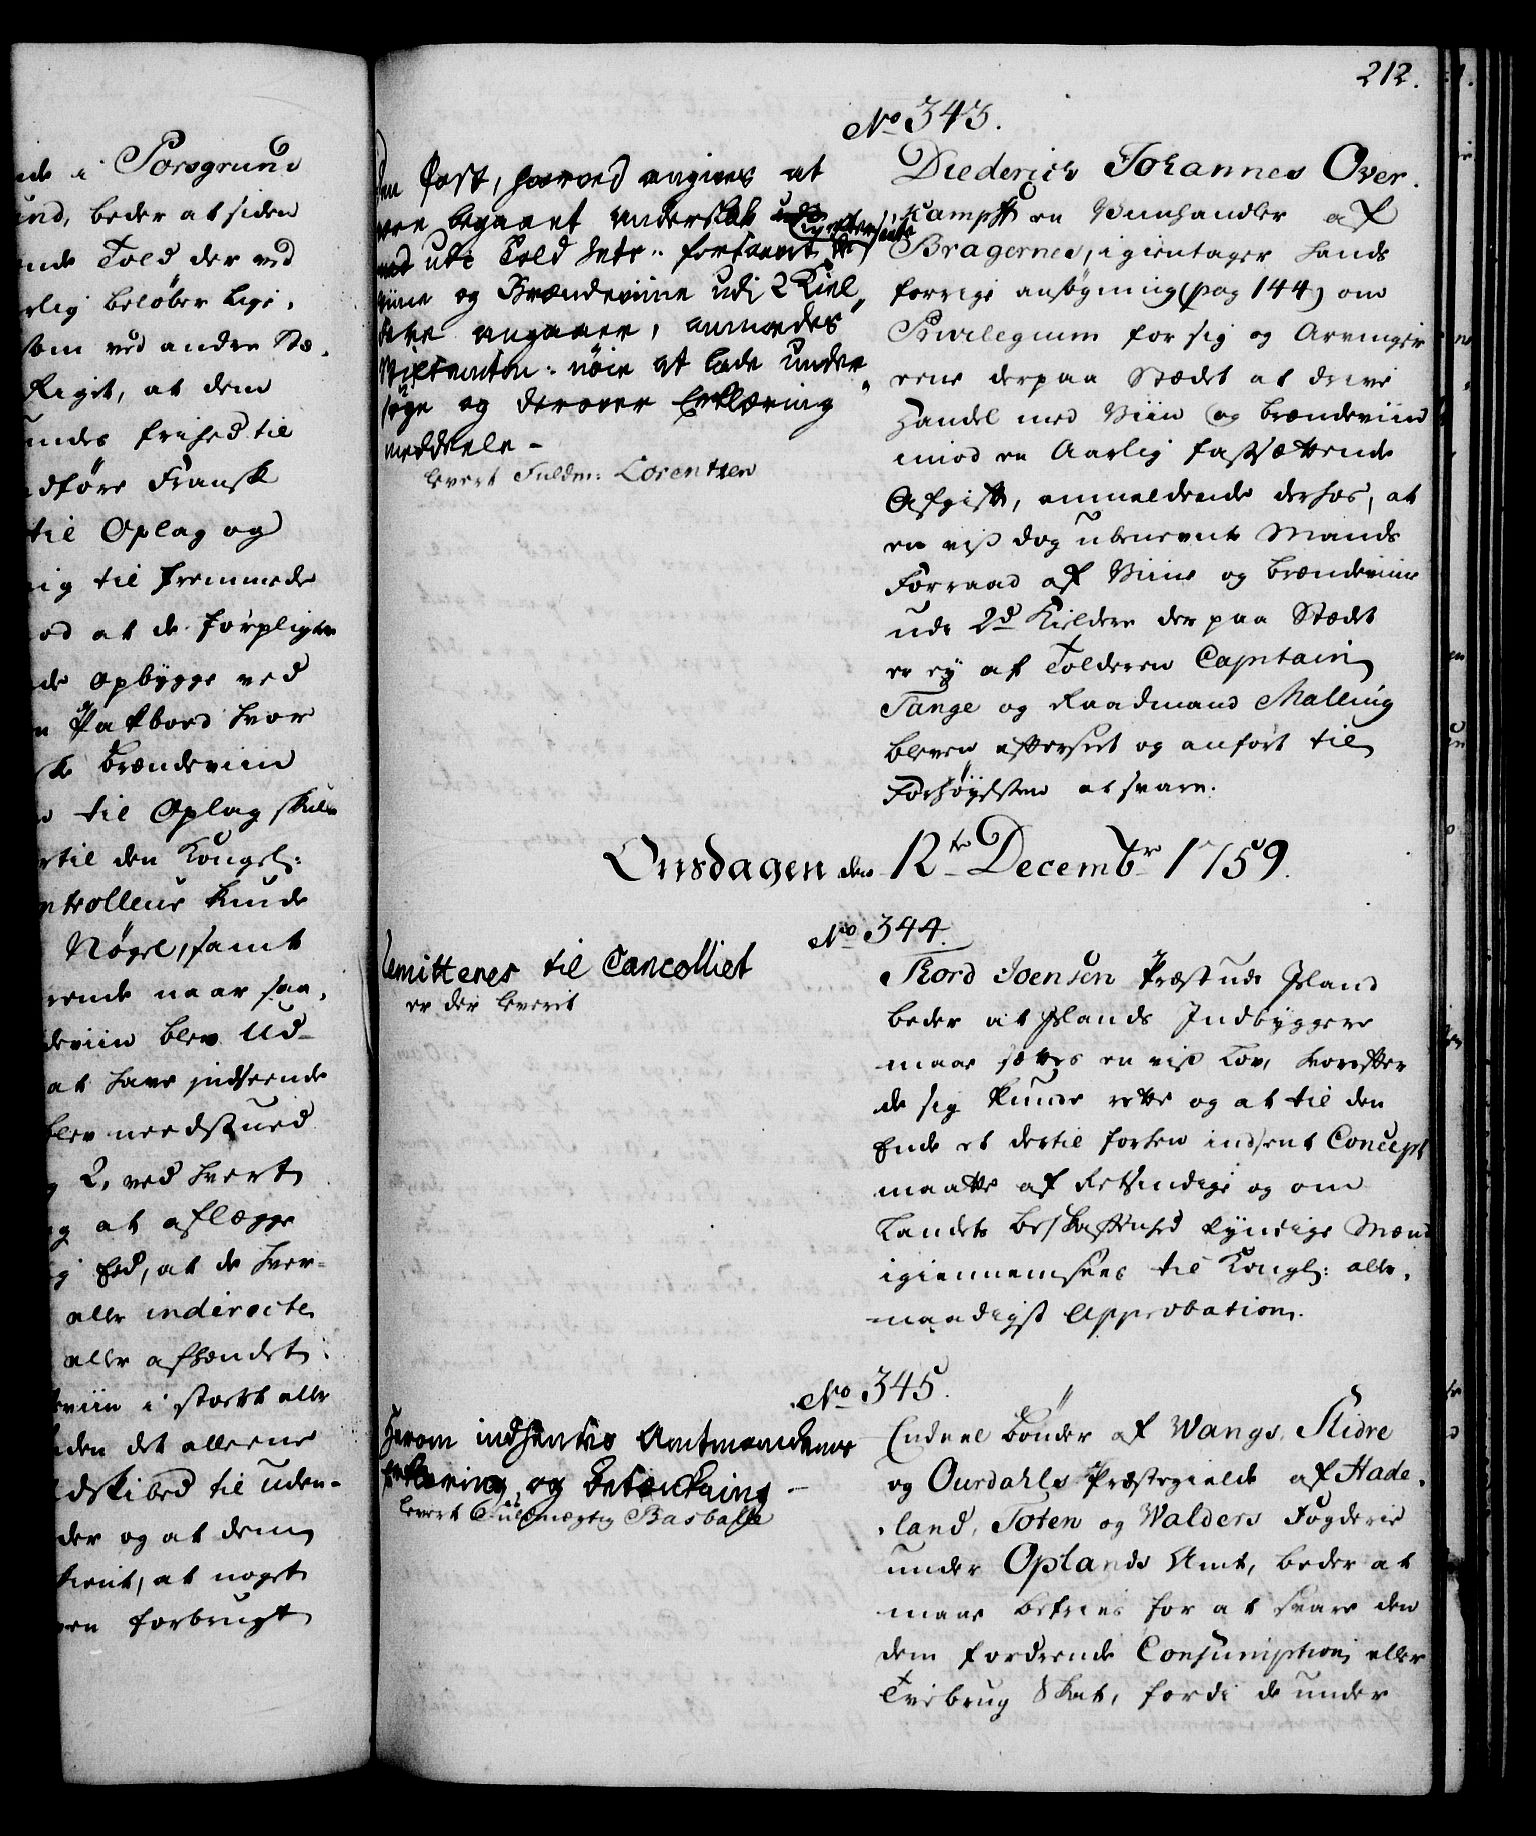 ude i Porsgrund
und, beder at siden
ende Told der ved
rlig beløber lige,
som ved andre Stæ,
Riget, at dem
undes frihed til
udføre Fransk
til Oplag og
til fremmede
od at de forpligter
de opbygge ved
n Pakboed hvor
ske Brændeviin
til Oplag skulle
rtil den Kongel:
ntrolleur kunde
Nøgel, samt
rende naar saa,
deviin blev Ud-
at have jndseende
blev needstued
2, ved hvert
g at aflægge
g Eed, at de hver-
eller indirecte
eller afhændet
eviin i stort eller
den det alleene
dskibed til uden-
der og at dem
tient, at noget
en forbrugt
212.
No 343.
den Post, hvorved angives at
være begaaet underslæb
ud i Told Intr: forsaavt de
viine og Brændeviine udi 2 Kiel
dere angaaer, anmodes
Stiftamtm: nøie at lade under
søge og derover Erklæring
meddeele -
levert Fuldm: Lorentzen
Diederich Johannes Over.
kampff en Viinhandler af
Bragernes, igientager hands
forrige ansøgning (pag 144) om
Privilegium for sig og Arvinger
eene derpaa Stædet at drive
Handel med Viin og brændeviin
imod en Aarlig fastsættende
Afgift, anmeldende derhos, at
en viß dog ubenevnt Mands
Forraad af Viine og brændeviine
udi 2de Kieldere der paa Stædet
er ey af Tolderen Captain
Tange og Raadmand Malling
bleven efterseet og anført til
Forhøyelsen at svare.
Onsdagen den 12te Decembr 1759.
No 344.
Remitteres til Cancelliet
er der leverit
Thord Joensen Præst udi Jsland
beder at Jslands Indbyggere
maae sættes en viß Lov, hvorefter
de sig kunde rette og at til den
Ende et dertil forhen indsent Concept
maatte af Retsindige og om
Landets beskaffenhed kyndige Mænd
igiennemsees til Kongel: aller,
naadigst Approbation.
No 345.
Herom indhentes Amtmandens
Erklæring og Betænkning -
levert Fuldmægtig Basballe
Endeel bønder af Wangs, Slidre
og Ourdahls Præstegielde af Hade,
land, Toten og Walders Fogderie
under Oplands Amt, beder at
maae befries for at svare den
dem fordrende Consumption eller
Tvebrug Skat, fordi de under